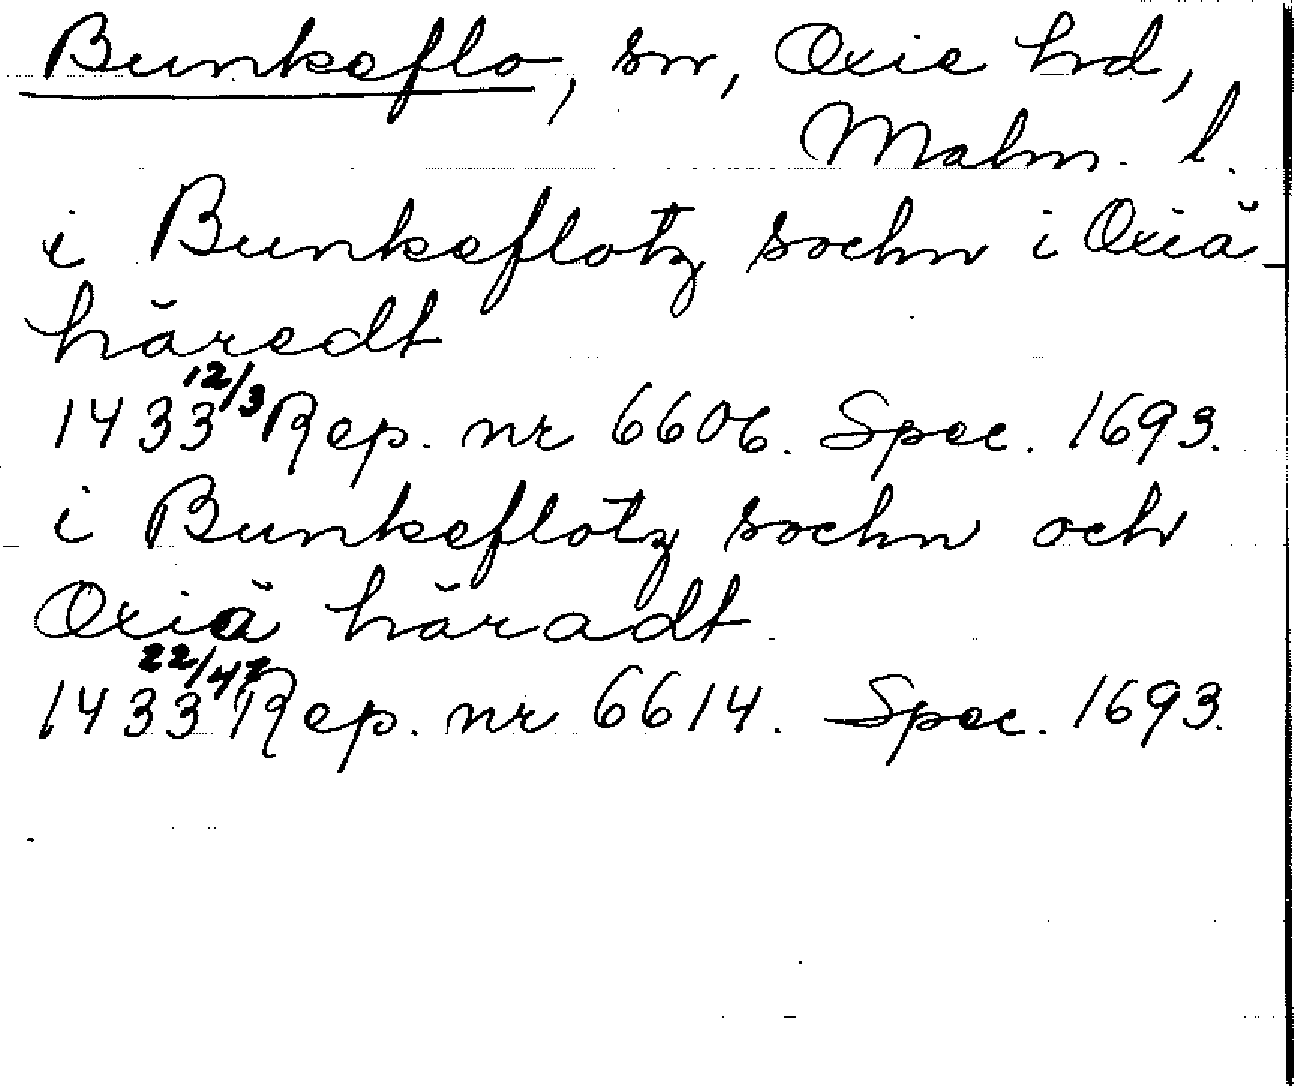 Bunkeflo, sn, Oxie hd,
Malm. l.
i Bunkeflotz sochn i Oxiä-
häredt
1433 12/3 Rep. nr 6606. Spec. 1693.
i Bunkeflotz sochn och
Oxiä häradt
1433 22/4 Rep. nr 6614. Spec. 1693.